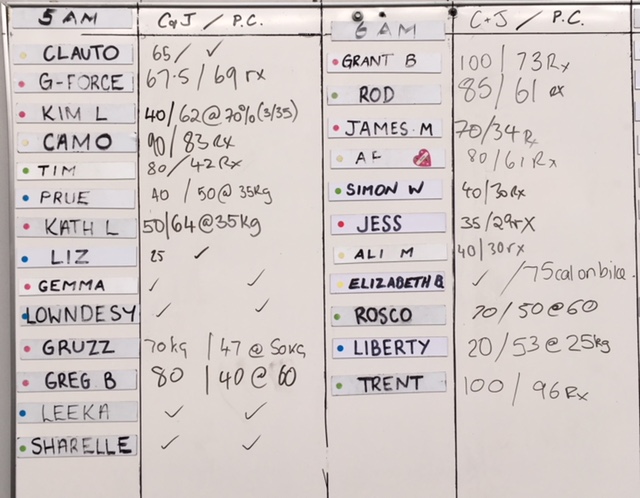 5 AM C&J / P.C.
CLAUTO 65/ ✓
G-FORCE 67.5/69 rx
KIM L 40/62@70%(3/35)
CAMO 90/83 Rx
TIM 80/42 Rx
PRUE 40/50@35kg
KATH L 50/64@35kg
LIZ 25 ✓
GEMMA ✓ ✓
LOWNDESY ✓ ✓
GRUZZ 70kg | 47 @ 50kg
GREG B 80 | 40 @ 60
LEEKA ✓ ✓
SHARELLE ✓ ✓
6 AM C+J / P.C.
GRANT B 100/73 Rx
ROD 85/61 rx
JAMES M 70/34 Rx
AF 80/61 Rx
SIMON W 40/30 Rx
JESS 35/29rX
ALI M 40/30 rx
ELIZABETH B ✓ /75 cal on bike.
ROSCO 70/50@60
LIBERTY 20/53@25kg
TRENT 100/96 Rx